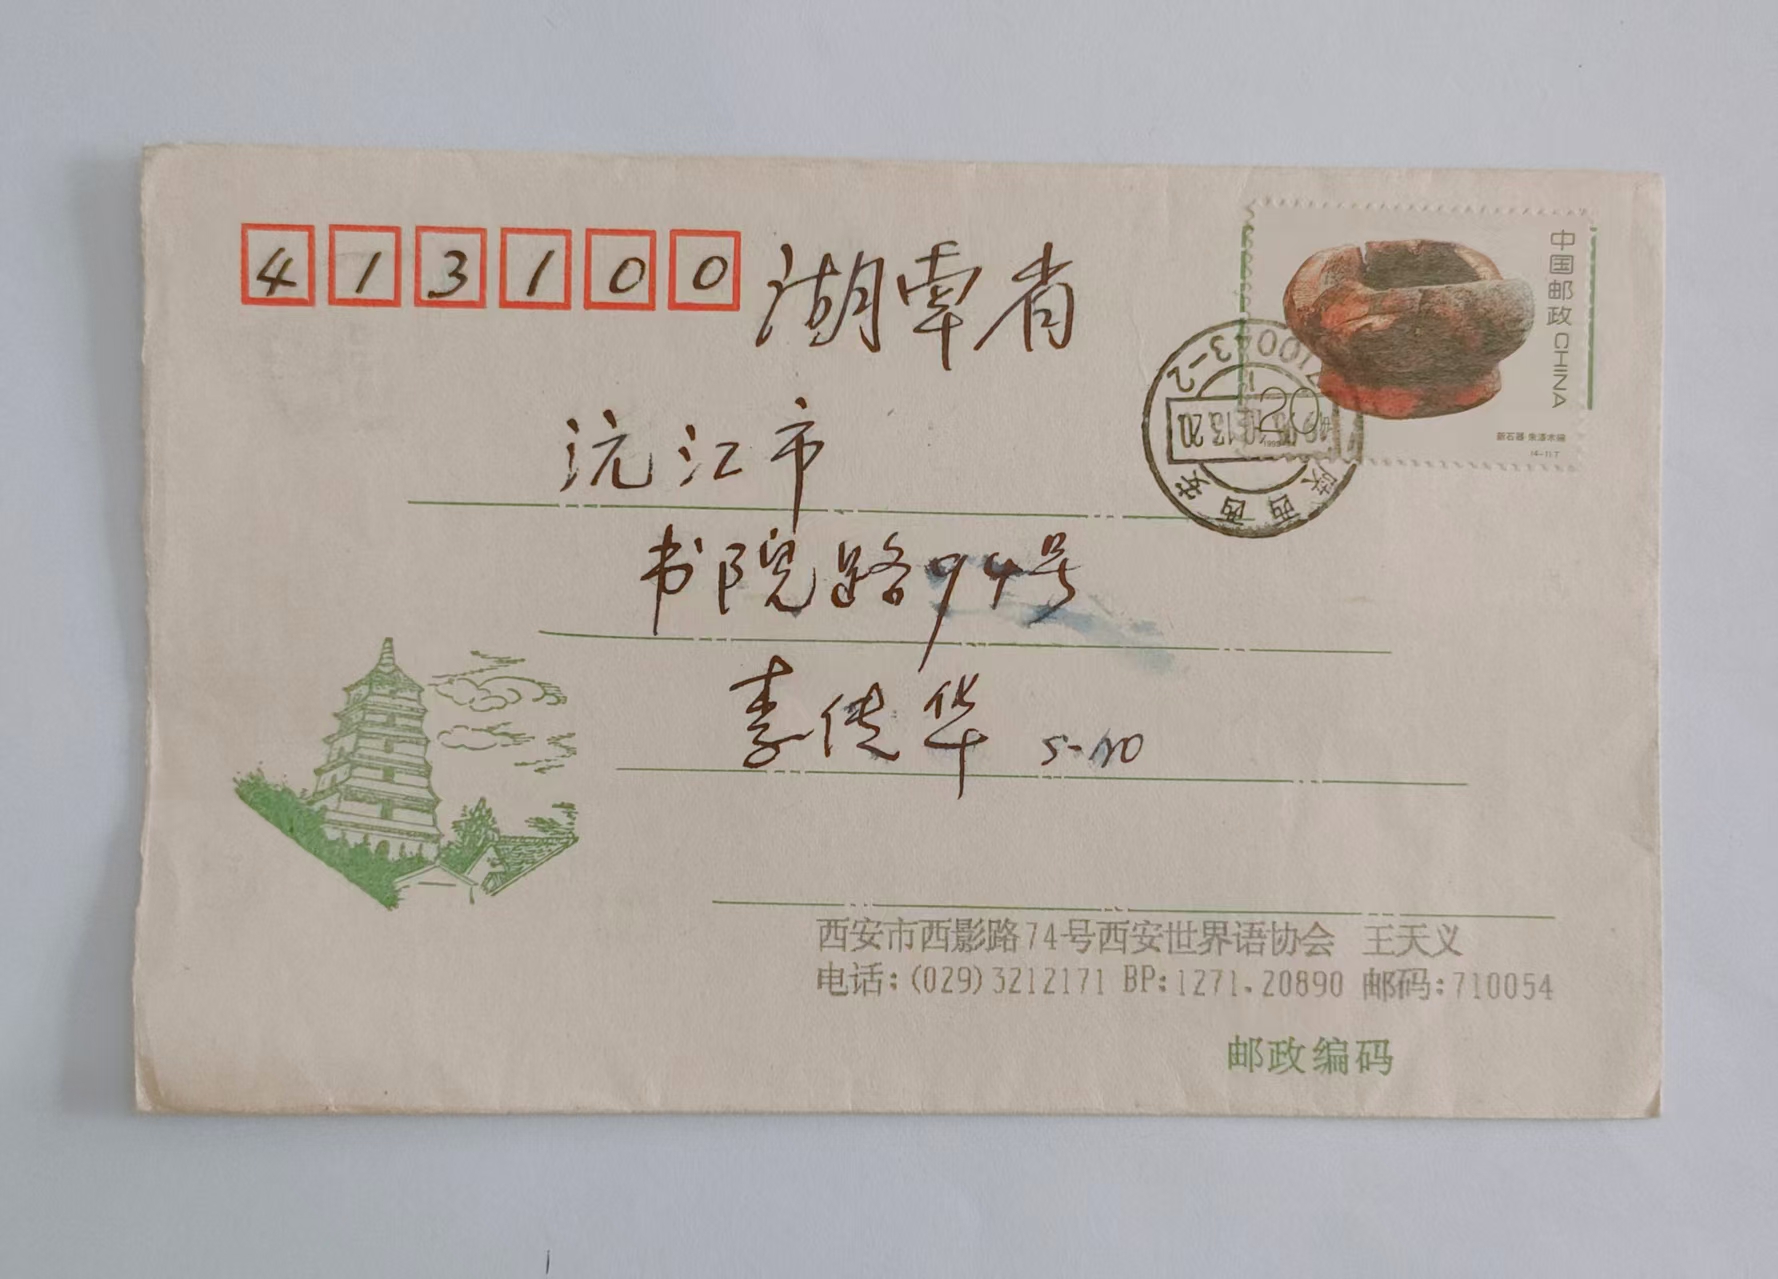 413100
湖南省
沅江市
书院路94号
李传华 5-10
中国邮政 CHINA
20
1993
新石器 朱漆木碗
(4-1)T
710043-2
陕西西安
西安市西影路74号西安世界语协会 王天义
电话:(029)3212171 BP:1271.20890 邮码:710054
邮政编码